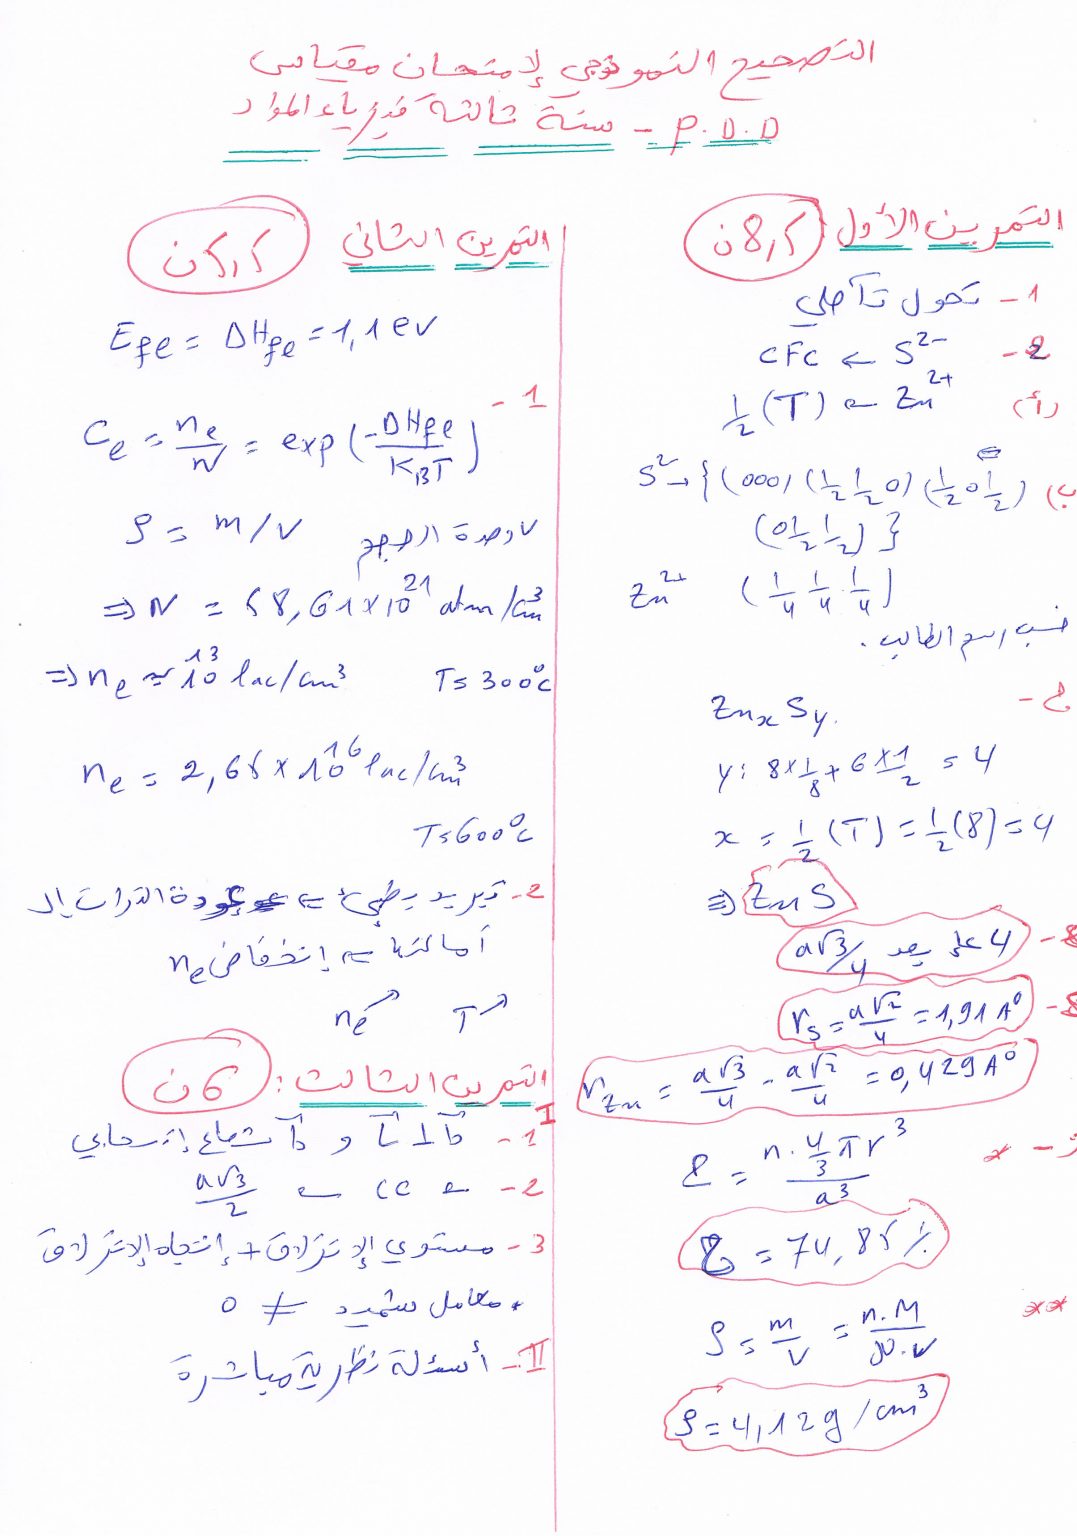 التصحيح النموذجي لإمتحان مقياس
P.D.D - سنة ثالثة فيزياء المواد
التمرين الأول 8,5ن
1- تحول تآصلي
2- S²⁻ → CFC
أ) Zn²⁺ → ½(T)
ب) S²⁻ → {(000) (½ ½ 0) (½ 0 ½)
(0 ½ ½)}
Zn²⁺ (¼ ¼ ¼)
حسب رسم الطالب.
ج- ZnxSy.
y: 8×1/8 + 6×1/2 = 4
x = ½(T) = ½(8) = 4
⇒ ZnS
4 على بعد a√3/4
rS = a√2/4 = 1,91 A°
rZn = a√3/4 - a√2/4 = 0,429 A°
* = n.4/3 πr³ / a³
= 74,85 %
** ρ = m/V = n.M/N.V
ρ = 4,12 g/cm³
التمرين الثاني 5,5ن
Efe = ΔHfe = 1,1 ev
1-
Ce = ne/N = exp(-ΔHfe/KBT)
ρ = m/V لوحدة الحجم
⇒ N = 58,61×10²¹ atm/cm³
⇒ ne ≈ 10¹³ lac/cm³ T=300°C
ne = 2,65×10¹⁶ lac/cm³
T=600°C
2- تبريد بطيئ ← عودة الذرات إلى
أماكنها ← إنخفاض ne
T↗ ne↗
التمرين الثالث: 6ن
I
1- و شعاع إنسحابي
2- ← CC ← a√3/2
3- مستوي الإنزلاق + إتجاه الإنزلاق
+ معامل شميد ≠ 0
II- أسئلة نظرية مباشرة